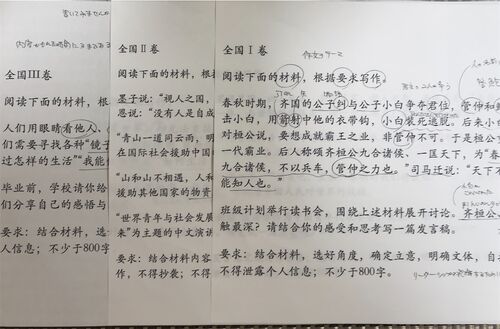 全国Ⅲ卷
阅读下面的材料，根
人们用眼睛看他人、
们需要寻找各种“镜子
过怎样的生活”“我能
毕业前，学校请你给
们分享自己的感悟与
要求：结合材料，选
人信息；不少于800字
全国Ⅱ卷
阅读下面的材料，根
墨子说：“视人之国，
恩说：“没有人是自成
“青山一道同云雨，明
在国际社会援助中国
“山和山不相遇，人和
援助其他国家的物资
“世界青年与社会发展
来”为主题的中文演讲
要求：结合材料内容
作，不得抄袭；不得
全国Ⅰ卷
作文のテーマ
阅读下面的材料，根据要求写作。
春秋时期，齐国的公子纠与公子小白争夺君位，管仲和
击小白，用箭射中他的衣带钩，小白装死逃脱。后来小白
对桓公说，要想成就霸王之业，非管仲不可。于是桓公
一代霸业。后人称颂齐桓公九合诸侯、一匡天下，为“春
九合诸侯，不以兵车，管仲之力也。”司马迁说：“天下
能知人也。”
班级计划举行读书会，围绕上述材料展开讨论。齐桓公
触最深？请结合你的感受和思考写一篇发言稿。
要求：结合材料，选好角度，确定立意，明确文体，自
不得泄露个人信息；不少于800字。